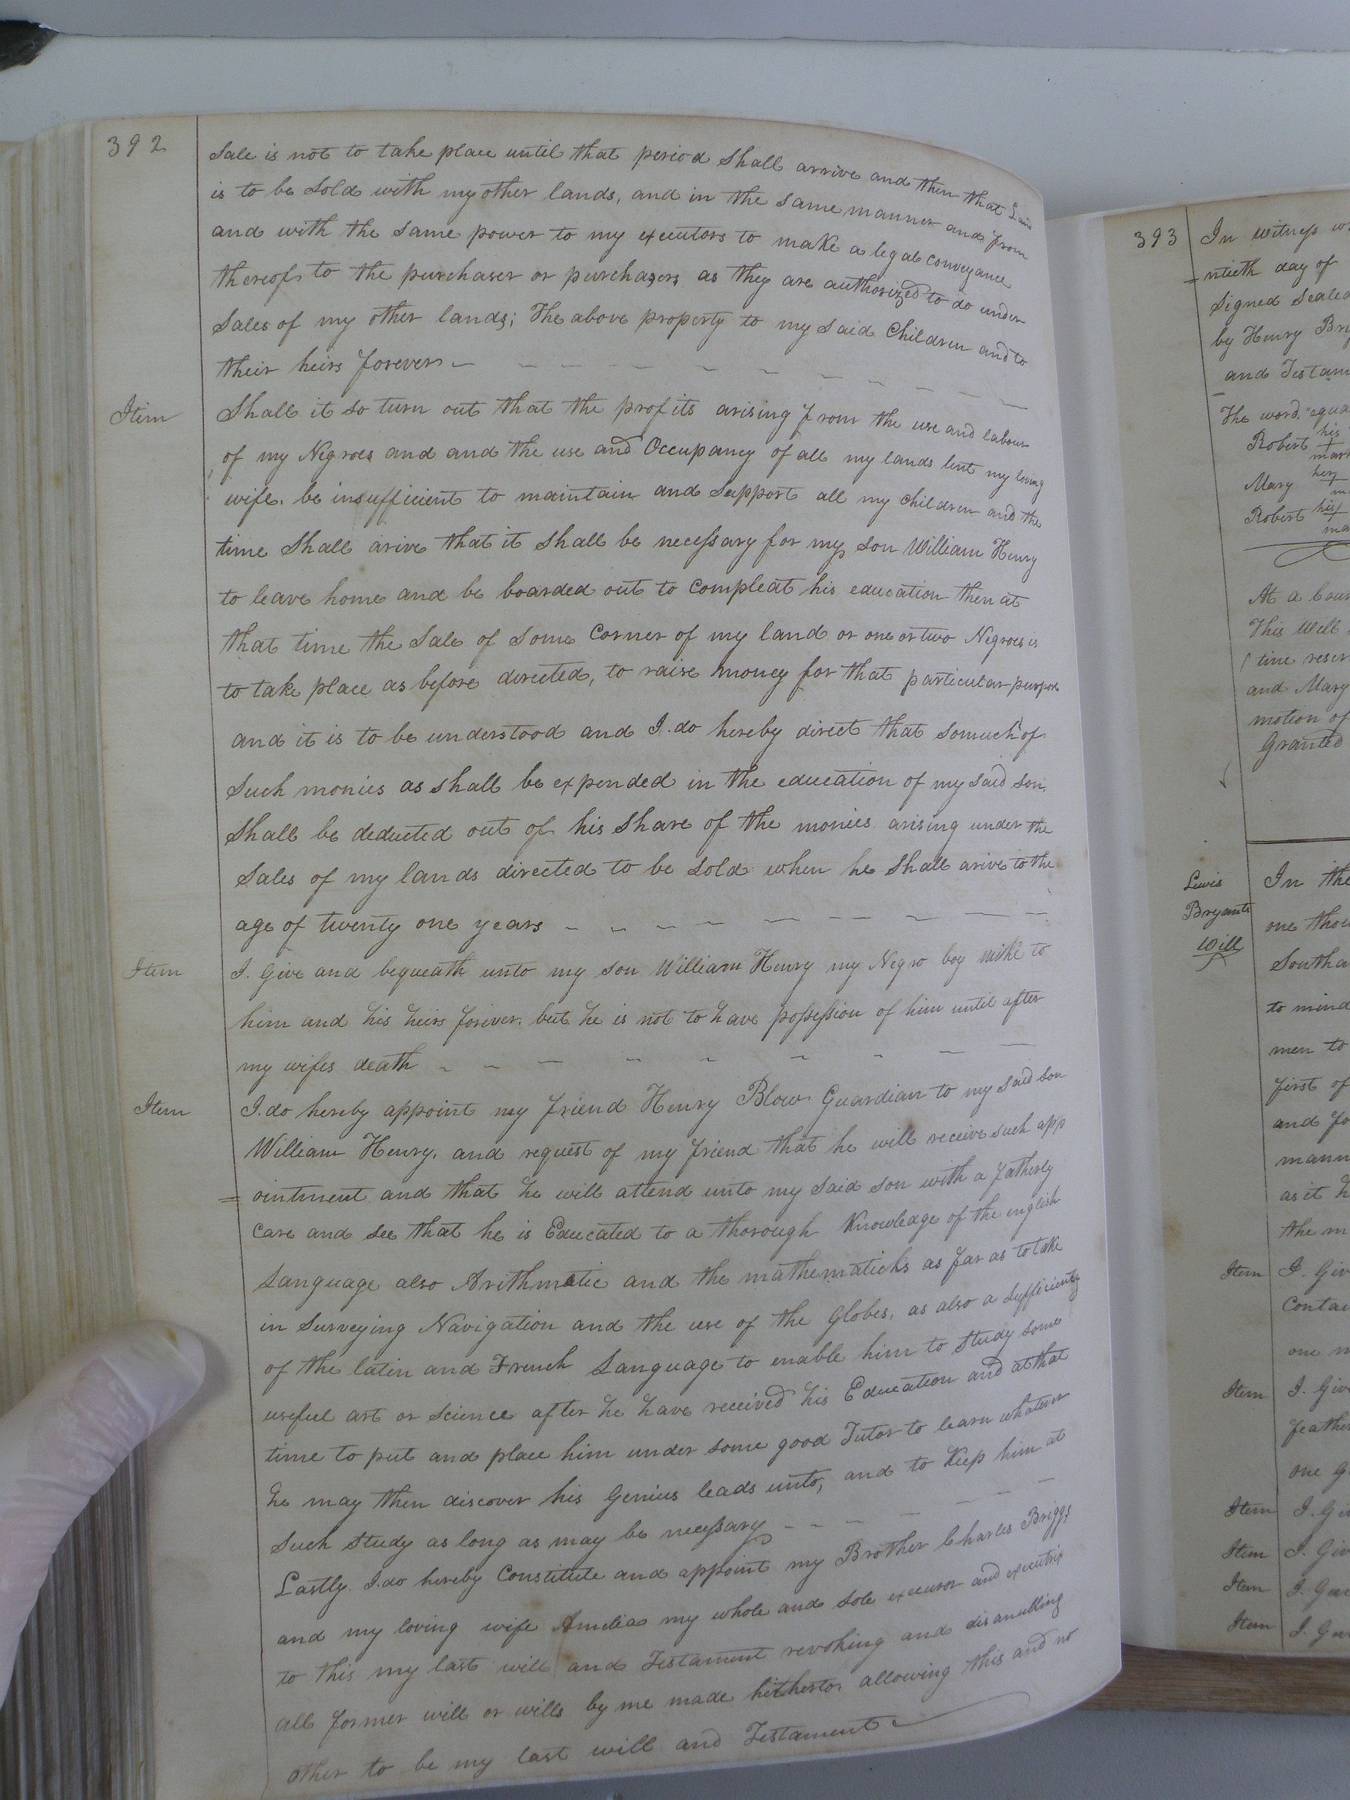 392
Sale is not to take place until that period shall arrive and then that Land
is to be Sold with my other lands, and in the same manner and from
and with the same power to my executors to make a legal conveyance
thereof to the purchaser or purchasers as they are authorized to do under
Sales of my other lands; The above property to my said Children and to
their heirs forever
Item
Shall it so turn out that the profits arising from the use and labour
of my Negroes and and the use and Occupancy of all my lands lent my loving
wife. be insufficient to maintain and Support all my children and the
time Shall arive that it shall be necessary for my son William Henry
to leave home and be boarded out to compleat his education then at
that time the Sale of Some Corner of my land or one or two Negroes is
to take place as before directed, to raise money for that particular purpose
and it is to be understood and I do hereby direct that somuch of
Such monies as shall be expended in the education of my said son
Shall be deducted out of his Share of the monies arising under the
Sales of my lands directed to be Sold when he Shall arive to the
age of twenty one years
Item
I. Give and bequeath unto my son William Henry my Negro boy Mike to
him and his heirs forever. but he is not to have possession of him until after
my wifes death
Item
I. do hereby appoint my friend Henry Blow Guardian to my said son
William Henry. and request of my friend that he will receive such app
=ointment and that he will attend unto my said son with a fatherly
care and see that he is Educated to a thorough Knowledge of the english
Language also Arithmatic and the mathematicks as far as to take
in Surveying Navigation and the use of the Globes, as also a Sufficiently
of the latin and French Language to enable him to Study some
useful art or science after he have received his Education and at that
time to put and place him under some good Tutor to learn whatever
he may then discover his Genius leads unto, and to Keep him at
Such Study as long as may be necessary
Lastly. I. do hereby Constitute and appoint my Brother Charles Briggs
and my loving wife Amelia my whole and Sole executor and executrix
to this my last will and Testament revoking and disanulling
all former will or wills by me made hitherto allowing this and no
other to be my last will and Testament
393
In witness
ntieth day of
Signed Sealed
by Henry
and
The word
Robert his
mark
Mary her
Robert his
At a
This Will
and Mary
motion of
Granted
Lewis
Bryants
Will
In the
one
to mind
men to
first of
and
as it
the
Item I. Give
one
Item I. Give
one
Item I.
Item I.
Item I.
Item I.